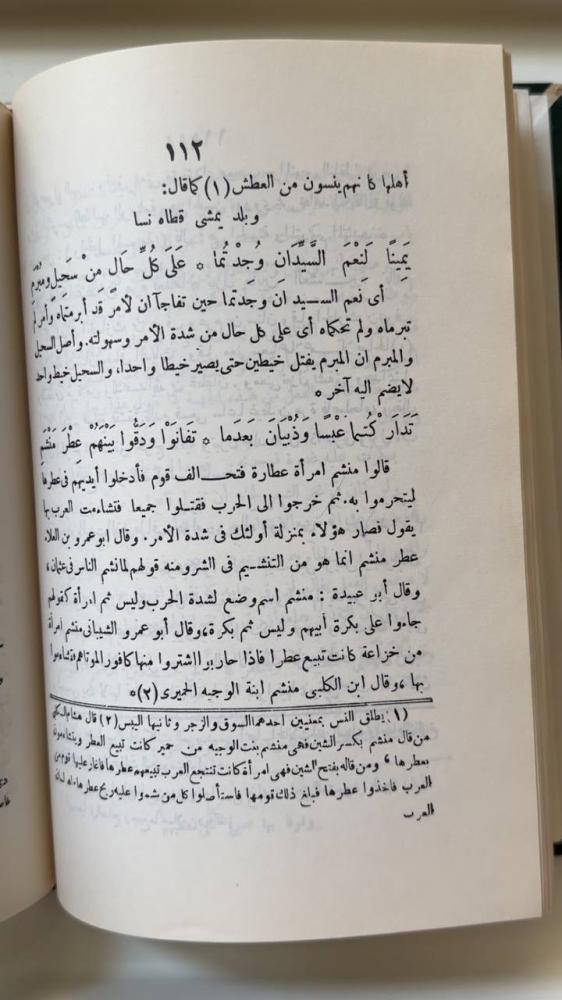 ١١٢
أهلها كانهم ينسون من العطش (١) كما قال:
وبلد يمشى قطاه نسا
يَمِينًا لَنِعْمَ السَّيِّدَانِ وُجِدْتُمَا * عَلَى كُلِّ حَالٍ مِنْ سَحِيلٍ وَمُبْرَمِ
أى نعم السيدان وجدتما حين تفاجآن لأمر قد أبرمتماه وأمر لم
تبرماه ولم تحكماه أى على كل حال من شدة الأمر وسهولته. وأصل السحيل
والمبرم ان المبرم يفتل خيطين حتى يصير خيطا واحدا، والسحيل خيط واحد
لا يضم اليه آخر *
تَدَارَكْتُما عَبْسًا وَذُبْيَانَ بَعْدَمَا * تَفَانَوْا وَدَقُّوا بَيْنَهُمْ عِطْرَ مَنْشِمِ
قالوا منشم امرأة عطارة فتحالف قوم فأدخلوا أيديهم فى عطرها
ليتحرموا به. ثم خرجوا الى الحرب فقتلوا جميعا فتشاءمت العرب بها
يقول فصار هؤلاء بمنزلة أولئك فى شدة الأمر. وقال ابو عمرو بن العلاء
عطر منشم انما هو من التنشيم فى الشر ومنه قولهم لما نشم الناس فى عثمان،
وقال أبو عبيدة : منشم اسم وضع لشدة الحرب وليس ثم امرأة كقولهم
جاءوا على بكرة أبيهم وليس ثم بكرة، وقال أبو عمرو الشيبانى منشم امرأة
من خزاعة كانت تبيع عطرا فاذا حاربوا اشتروا منها كافورا لموتاهم فتشاءموا
بها، وقال ابن الكلبى منشم ابنة الوجيه الحميرى (٢)*
(١) يطلق النس بمعنيين احدهما السوق والزجر وثانيها اليبس (٢) قال هشام الكلبى
من قال منشم بكسر الشين فهى منشم بنت الوجيه من حمير كانت تبيع العطر ويتشاءمون
بعطرها ، ومن قاله بفتح الشين فهى امرأة كانت تنتجع العرب تبيعهم عطرها فاغار عليها قوم من
العرب فاخذوا عطرها فبلغ ذلك قومها فاستأصلوا كل من شموا عليه ريح عطرها
العرب